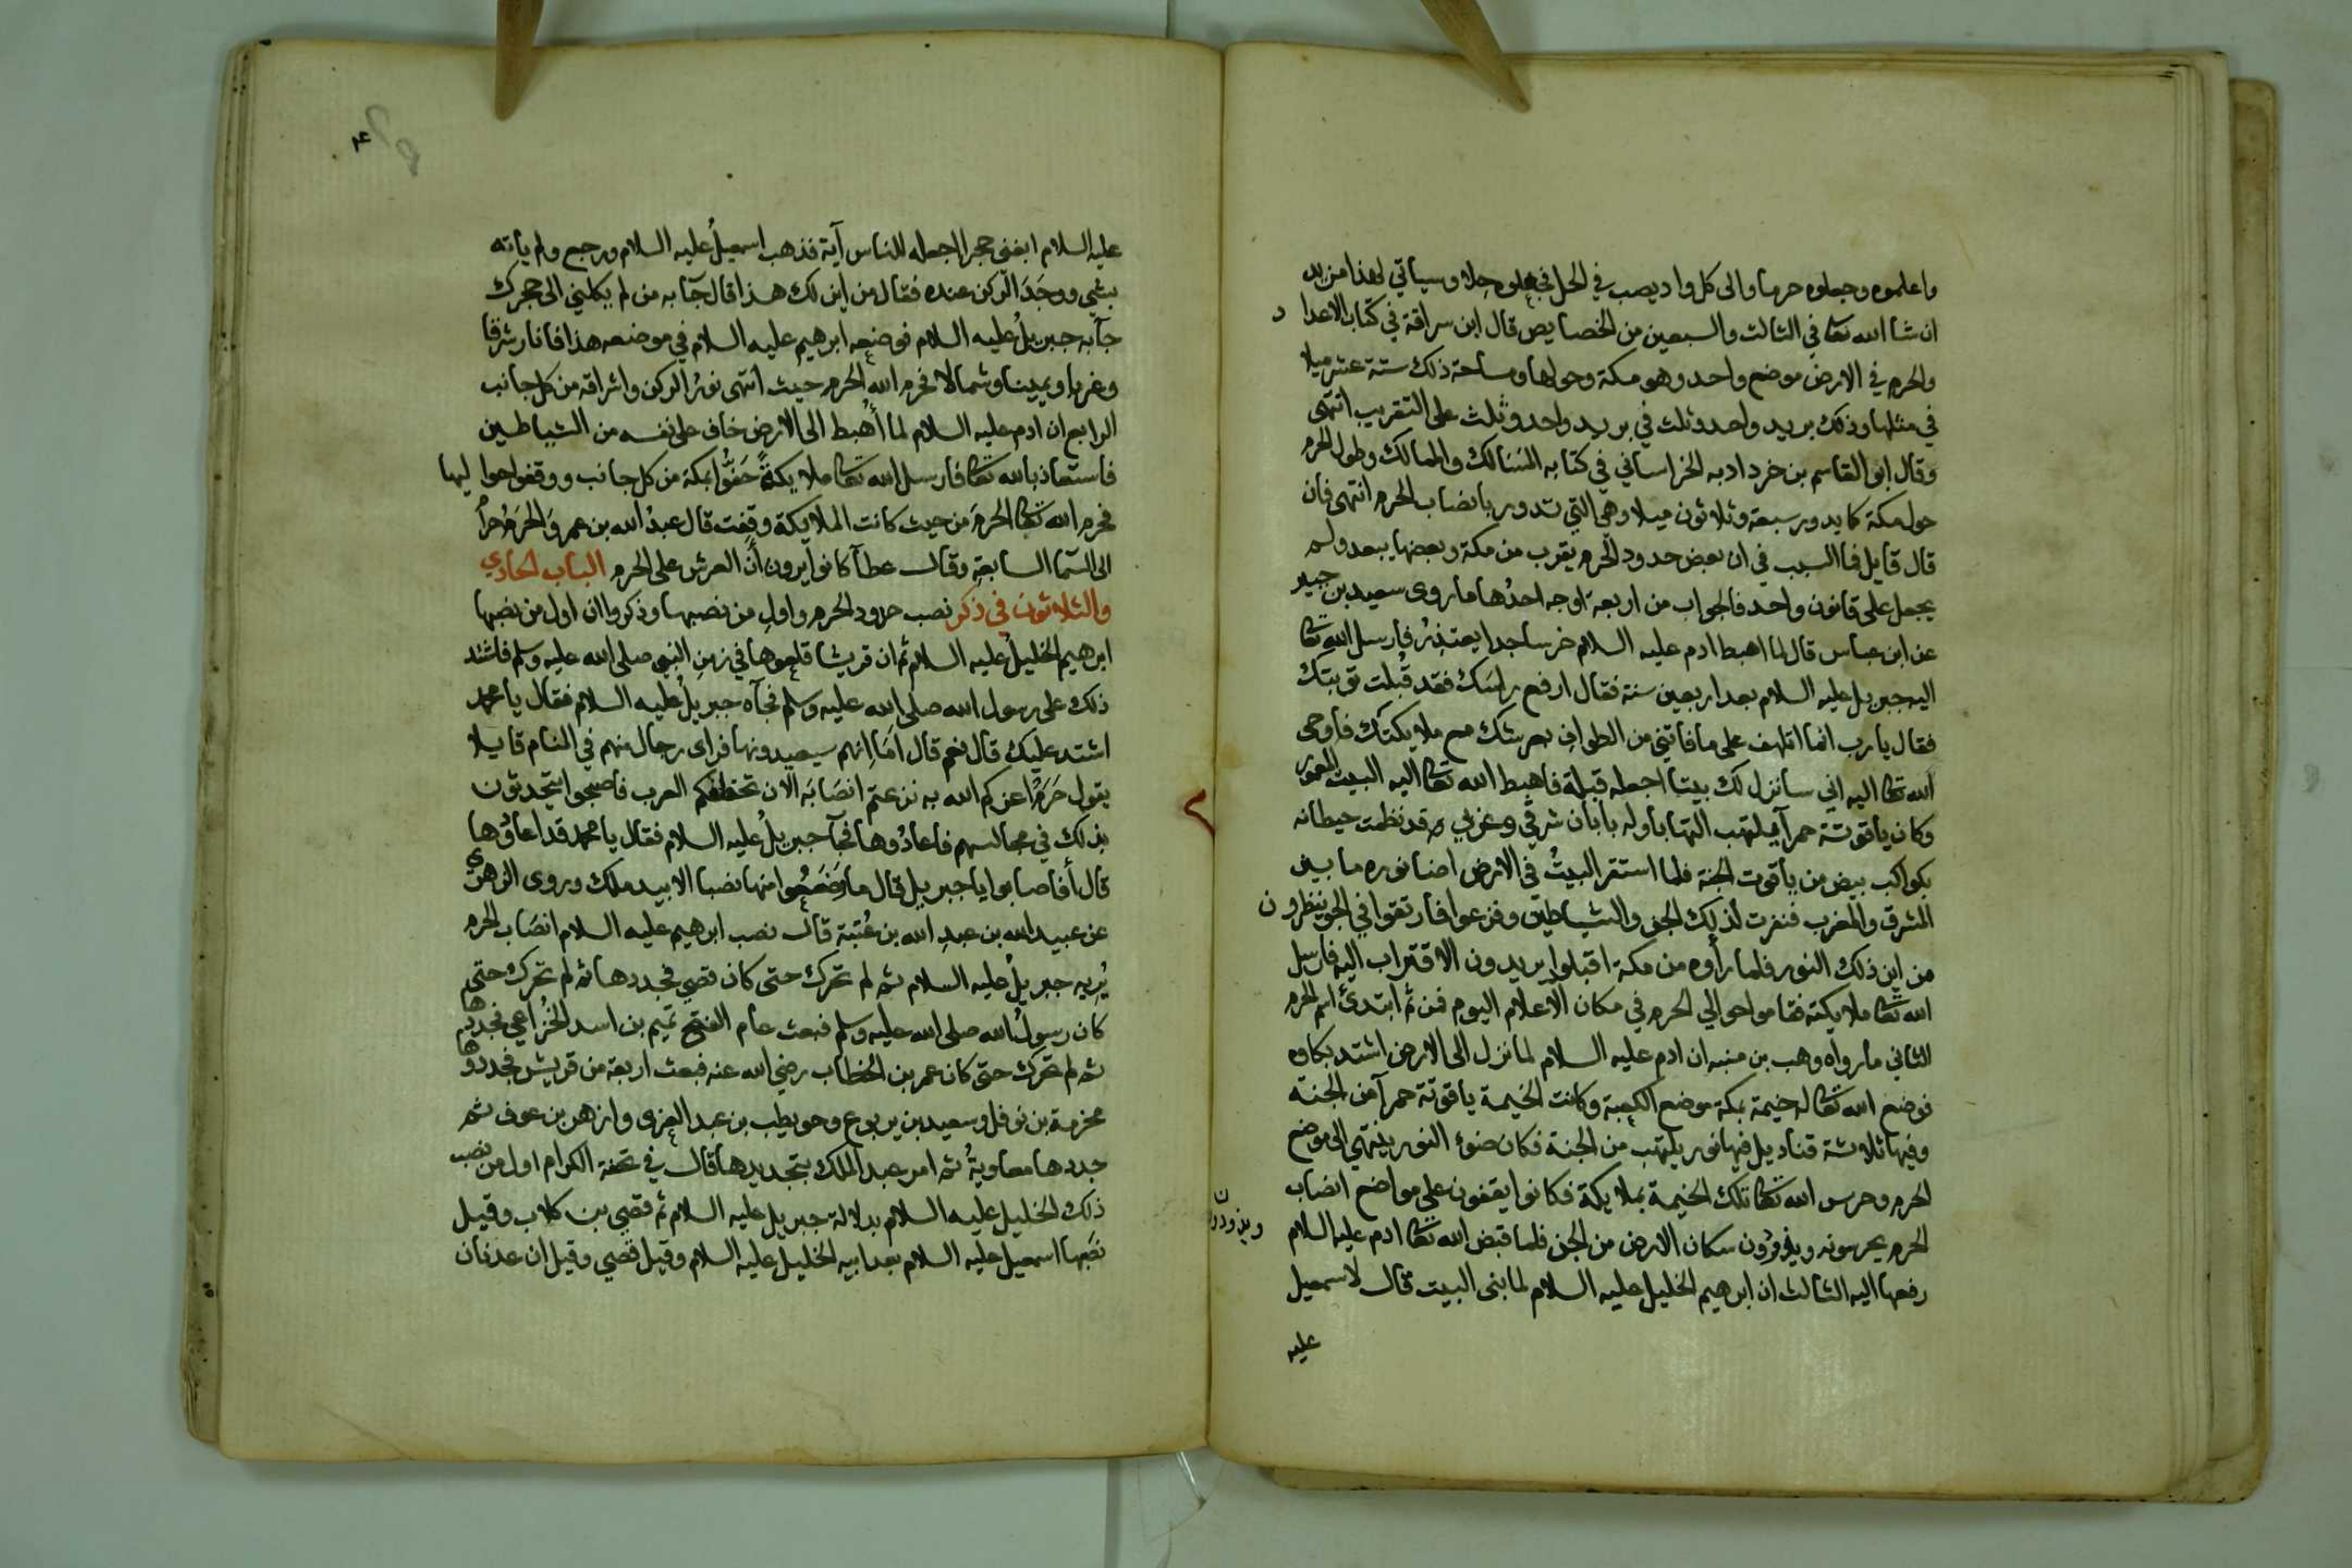 واعلموه وجعلوه حرما والى كل واد يصب في الحل فجعلوه حلا وسياتي لهذا مزيد
ان شا الله تعا في الثالث والسبعين من الخصايص قال ابن سراقة في كتاب الاعداد
والحرم في الارض موضع واحد وهو مكة وحولها ومساحة ذلك ستة عشر ميلا
في مثلها وذلك بريد واحد وثلث في بريد واحد وثلث على التقريب انتهى
وقال ابو القاسم بن خرداد به الخراساني في كتابه المسالك والممالك وطول الحرم
حول مكة كما يدور سبعة وثلاثون ميلا وهي التي تدور بانصاب الحرم انتهى فان
قال قايل فما السبب في ان بعض حدود الحرم يقرب من مكة وبعضها يبعد ولم
يجعل على قانون واحد فالجواب من اربعة اوجه احدها ما روى سعيد بن جبير
عن ابن عباس قال لما اهبط ادم عليه السلام خر ساجدا يعتذر فارسل الله تعا
اليه جبريل عليه السلام بعد اربعين سنة فقال ارفع راسك فقد قُبلت توبتك
فقال يا رب انما اتلهف على ما فاتني من الطواف بعرشك مع ملايكتك فاوحى
الله تعا اليه اني سانزل لك بيتا اجعله قبلة فاهبط الله تعا اليه البيت المعمور
وكان ياقوتة حمرآ يلتهب التهابا وله بابان شرقي وغربي وقد نظمت حيطانه
بكواكب بيض من ياقوت الجنة فلما استقر البيتُ في الارض اضا نوره ما بين
المشرق والمغرب فنفرت لذلك الجن والشياطين وفزعوا فارتقوا في الجو ينظرون
من اين ذلك النور فلما رأوه من مكة اقبلوا يريدون الاقتراب اليه فارسل
الله تعا ملايكته فقاموا حوالي الحرم في مكان الاعلام اليوم فمن ثم ابتدئ اسم الحرم
الثاني ما رواه وهب بن منبه ان ادم عليه السلام لما نزل الى الارض اشتد بكاوه
فوضع الله تعا له خيمة بمكة موضع الكعبة وكانت الخيمة ياقوتة حمرآ من الجنة
وفيها ثلاثة قناديل فيها نور يلتهب من الجنة فكان ضوء النور ينتهي الى موضع
الحرم وحرس الله تعا تلك الخيمة بملايكة فكانوا يقفون على مواضع انصاب
الحرم يحرسونه ويذودون سكان الارض من الجن فلما قبض الله تعا ادم عليه السلام
ويذودون
رفعها اليه الثالث ان ابرهيم الخليل عليه السلام لما بنى البيت قال لاسمعيل
عليه
عليه السلام ابغني حجرا اجعله للناس آية فذهب اسمعيلُ عليه السلام ورجع ولم ياته
بشي ووجَدَ الركن عنده فقال من اين لك هذا قال جآ به من لم يكلني الى حجرك
جآ به جبريلُ عليه السلام فوضعه ابرهيم عليه السلام في موضعه هذا فانار شرقا
وغربا ويمينا وشمالا فحرم الله الحرم حيث انتهى نورُ الركن واشراقه من كل جانب
الرابع ان ادم عليه السلام لما أُهبط الى الارض خاف على نفسه من الشياطين
فاستعاذ بالله تعا فارسل الله تعا ملايكةً حَفُّوا بمكة من كل جانب ووقفوا حواليها
فحرم الله تعا الحرمَ من حيث كانت الملايكة وقفت قال عبدُ الله بن عمر وَالحَرَمُ حرامٌ
الى السمآ السابعة وقال عطآ كانوا يرون أن العرش على الحرم الباب الحادي
والثلاثون في ذكر نصب حدود الحرم واول من نصبها وذكروا ان اول من نصبها
ابرهيم الخليلُ عليه السلام ثم ان قريشا قلعوها في زمن النبي صلى الله عليه وسلم فاشتد
ذلك على رسول الله صلى الله عليه وسلم فجآه جبريلُ عليه السلام فقال يا محمد
اشتد عليك قال نعم قال اَما انهم سيعيدونها فراى رجال منهم في المنام قايلا
يقول حَرَمٌ اعزكم الله به نزعتم انصَابَه الآن تخطفكم العرب فاصبحوا يتحدثون
بذلك في مجالسهم فاعادُوها فجآ جبريلُ عليه السلام فقال يا محمد قد اعادُوها
قال أفاصابوا يا جبريل قال ما وضعوا منها نصبا الا بيد ملك وروى الزهريُّ
عن عبيد الله بن عبدِ الله بن عُتبة قال نصب ابرهيم عليه السلام انصَاب الحرم
يُريه جبريلُ عليه السلام ثم لم تحرك حتى كان قصي فجددها ثم لم تحرك حتى
كان رسولُ الله صلى الله عليه وسلم فبعث عام الفتح تميم بن اسد الخُزاعي فجددها
ثم لم تحرك حتى كان عمر بن الخطاب رضي الله عنه فبعث اربعة من قريش فجددوها
مخرمة بن نوفل وسعيد بن يربوع وحويطب بن عبد العزى وازهر بن عوف ثم
جددها معاويةُ ثم امر عبد الملك بتجديدها قال في تحفة الكرام اول من نصب
ذلك الخليل عليه السلام بدلالة جبريل عليه السلام ثم قصي بن كلاب وقيل
نصبها اسمعيل عليه السلام بعد ابيه الخليل عليه السلام وقيل قصي وقيل ان عدنان